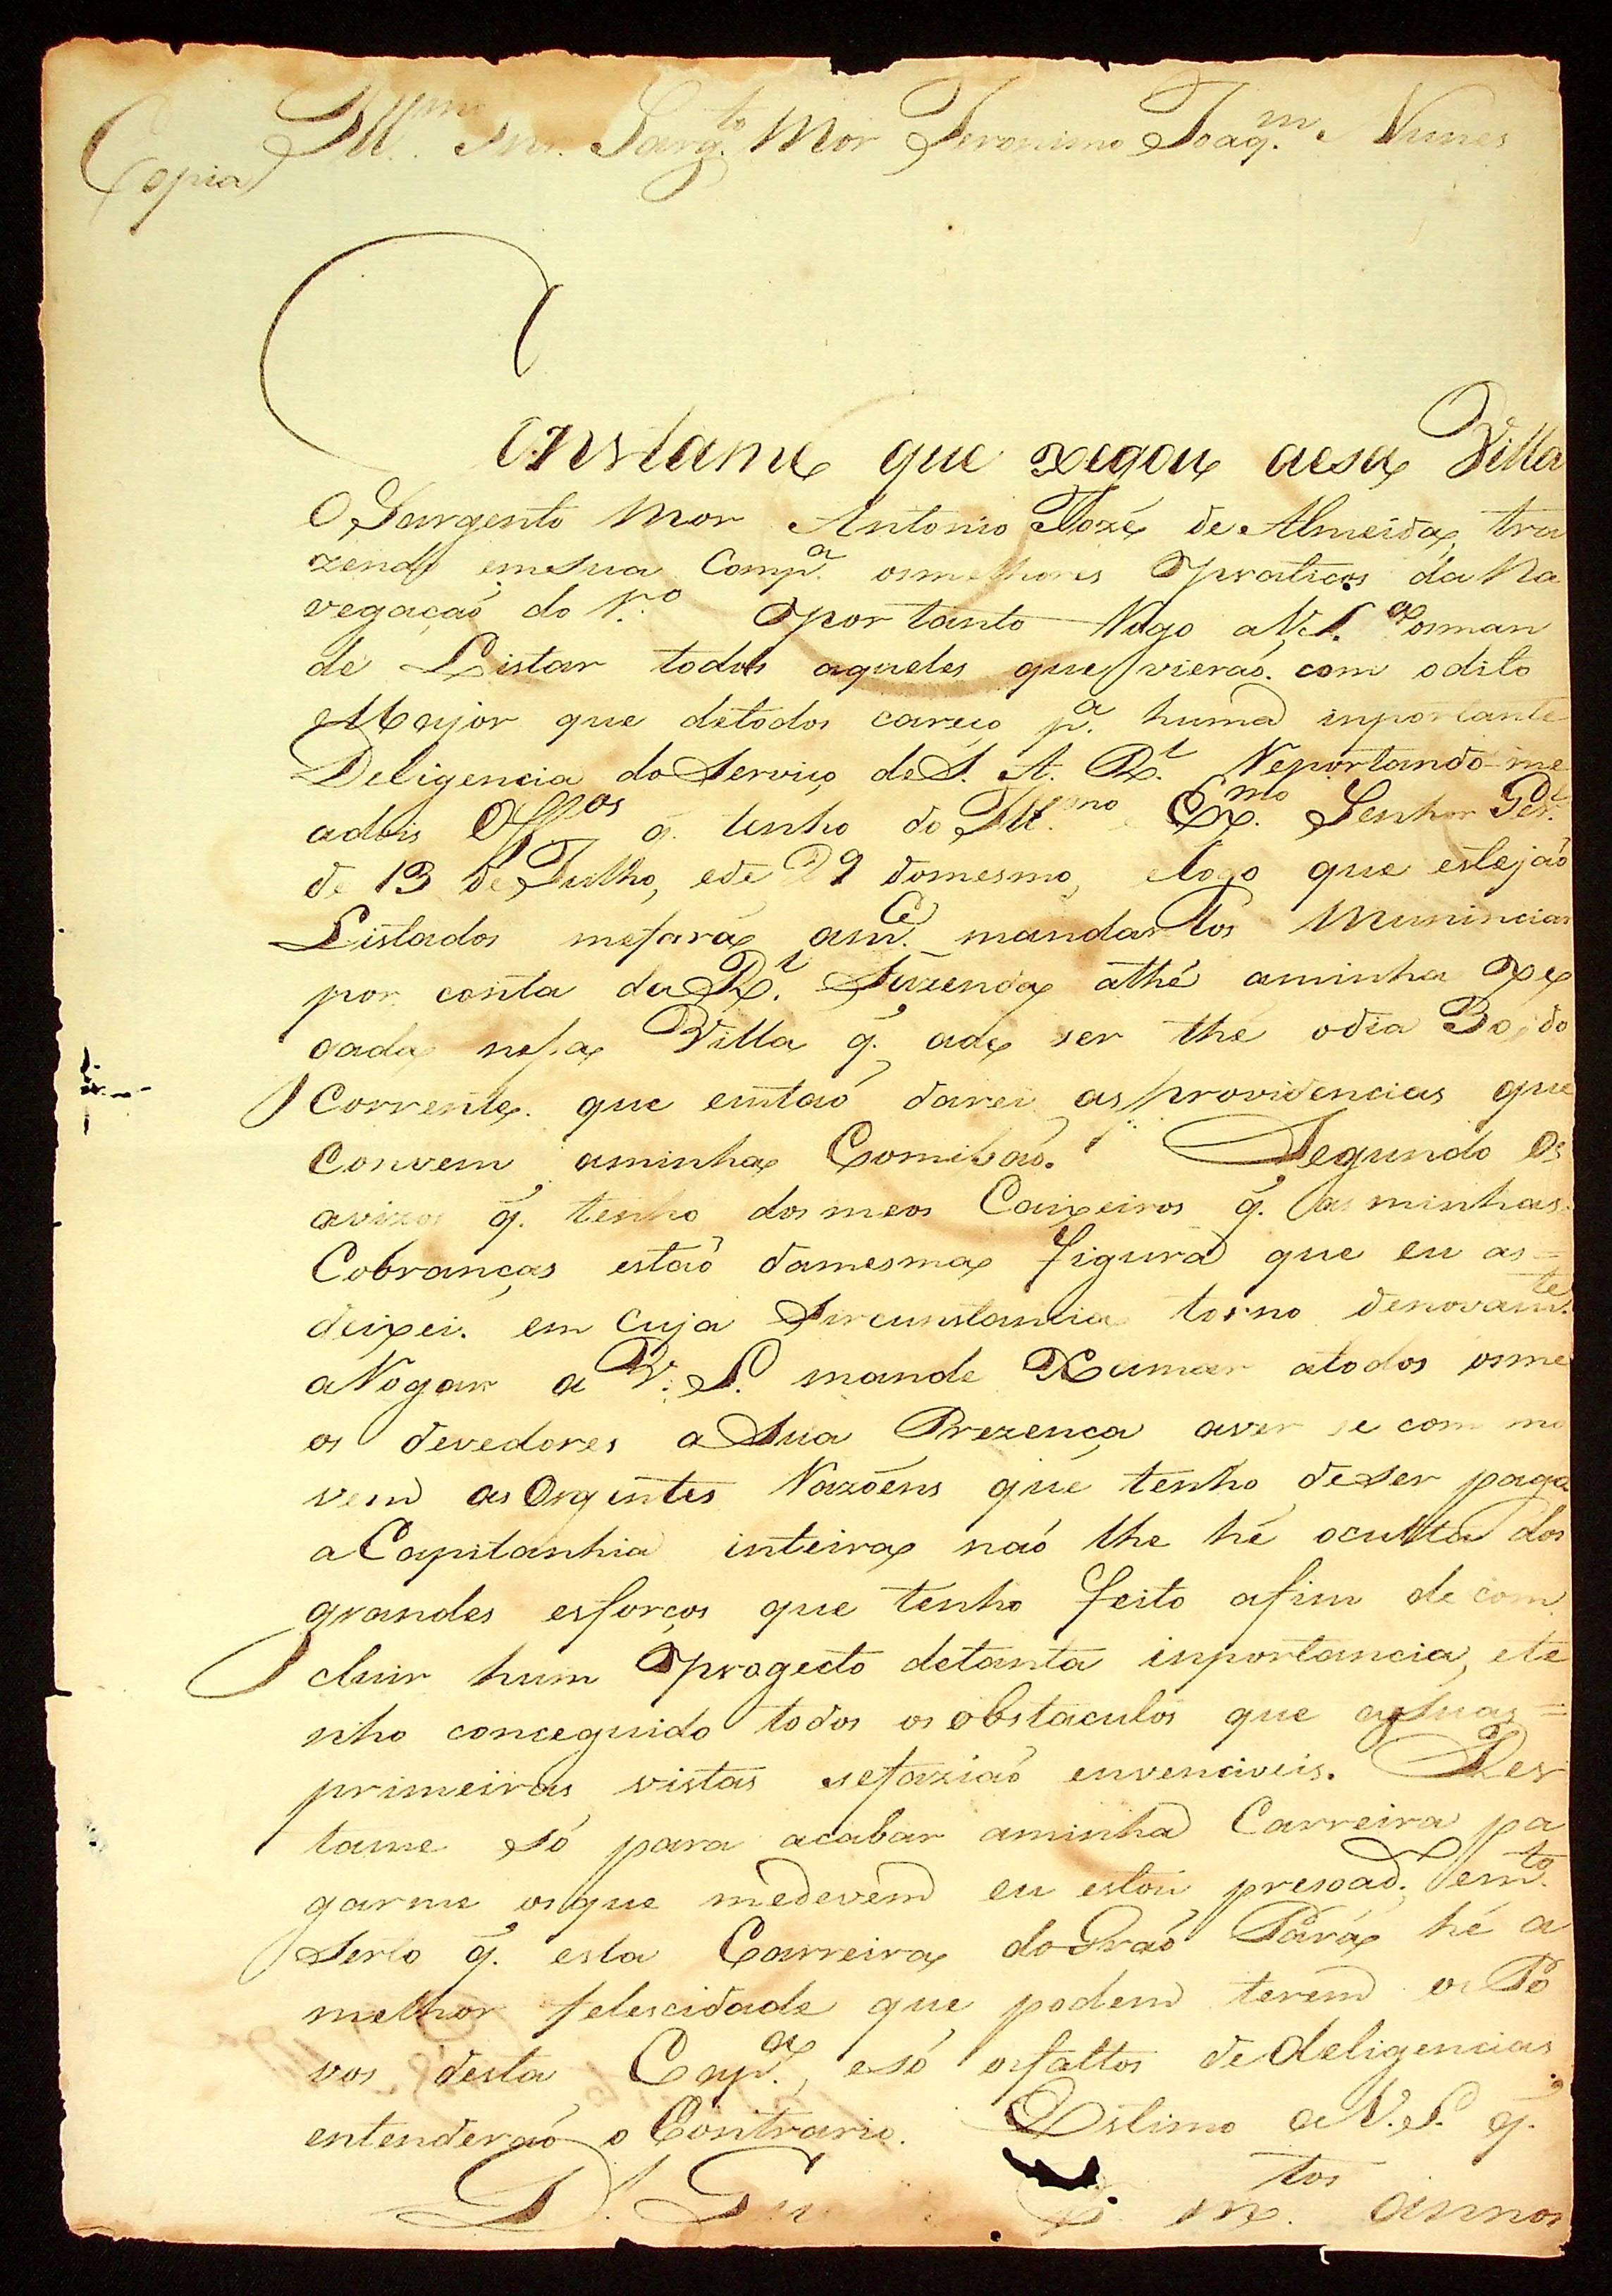 Copia Ill.mo Snr. Sarg.to Mor Jeronimo Joaq.m Nunes
Constame que xegou aesa Villa
O Sargento Mor Antonio Jozé de Almeida, tra
zendo emsua Comp.a osmelhores praticos da Na
vegaçaó do r.o portanto Rogo aV.S. osman
de Listar todos aqueles que vieraó com odito
Major que detodos careço p.a huma inportante
Deligencia do Serviço deS. A. R.l Reportando-me
adois Off.os q. tenho do Ill.mo e Ex.mo Senhor Gen.l
de 13 de Julho, ede 29 domesmo, elogo que estejaó
Listados mefará am.ce mandar los Muninciar
por conta da R.l Fazenda athé aminha xe
gada nesa Villa q. ade ser the odia 30, do
Corrente. que emtaó darei as providencias que
convem aminha Comisaó. Segundo os
avizos q. tenho dos meos Caixeiros q. as minhas
Cobranças estaó damesma figura que eu as =
deixei. em cuja Sircunstancia torno denovam.te
aRogar a V. S. mande Xamar atodos osme
os devedores a Sua Prezença aver se com mo
vem as Orgentes Razoens que tenho deser pago
a Capitanhia inteira naó lhe hé oculta dos
grandes esforços que tenho feito afim de com
cluir hum progecto detanta inportancia, ete
nho conceguido todos os obstaculos que asuas =
primeiras vistas sefaziaó envenciveis. Res
tame só para acabar aminha Carreira pa
garme osque medevem eu estou presoad.to em.to
Serto q. esta Carreira doGraó Pará hé a
melhor felescidade que podem terem os Po
vos desta Cap.a, esó osfaltos de deligencias
entenderaó o Contrario. Estimo aV.S. q.
D. Gu m.tos annos